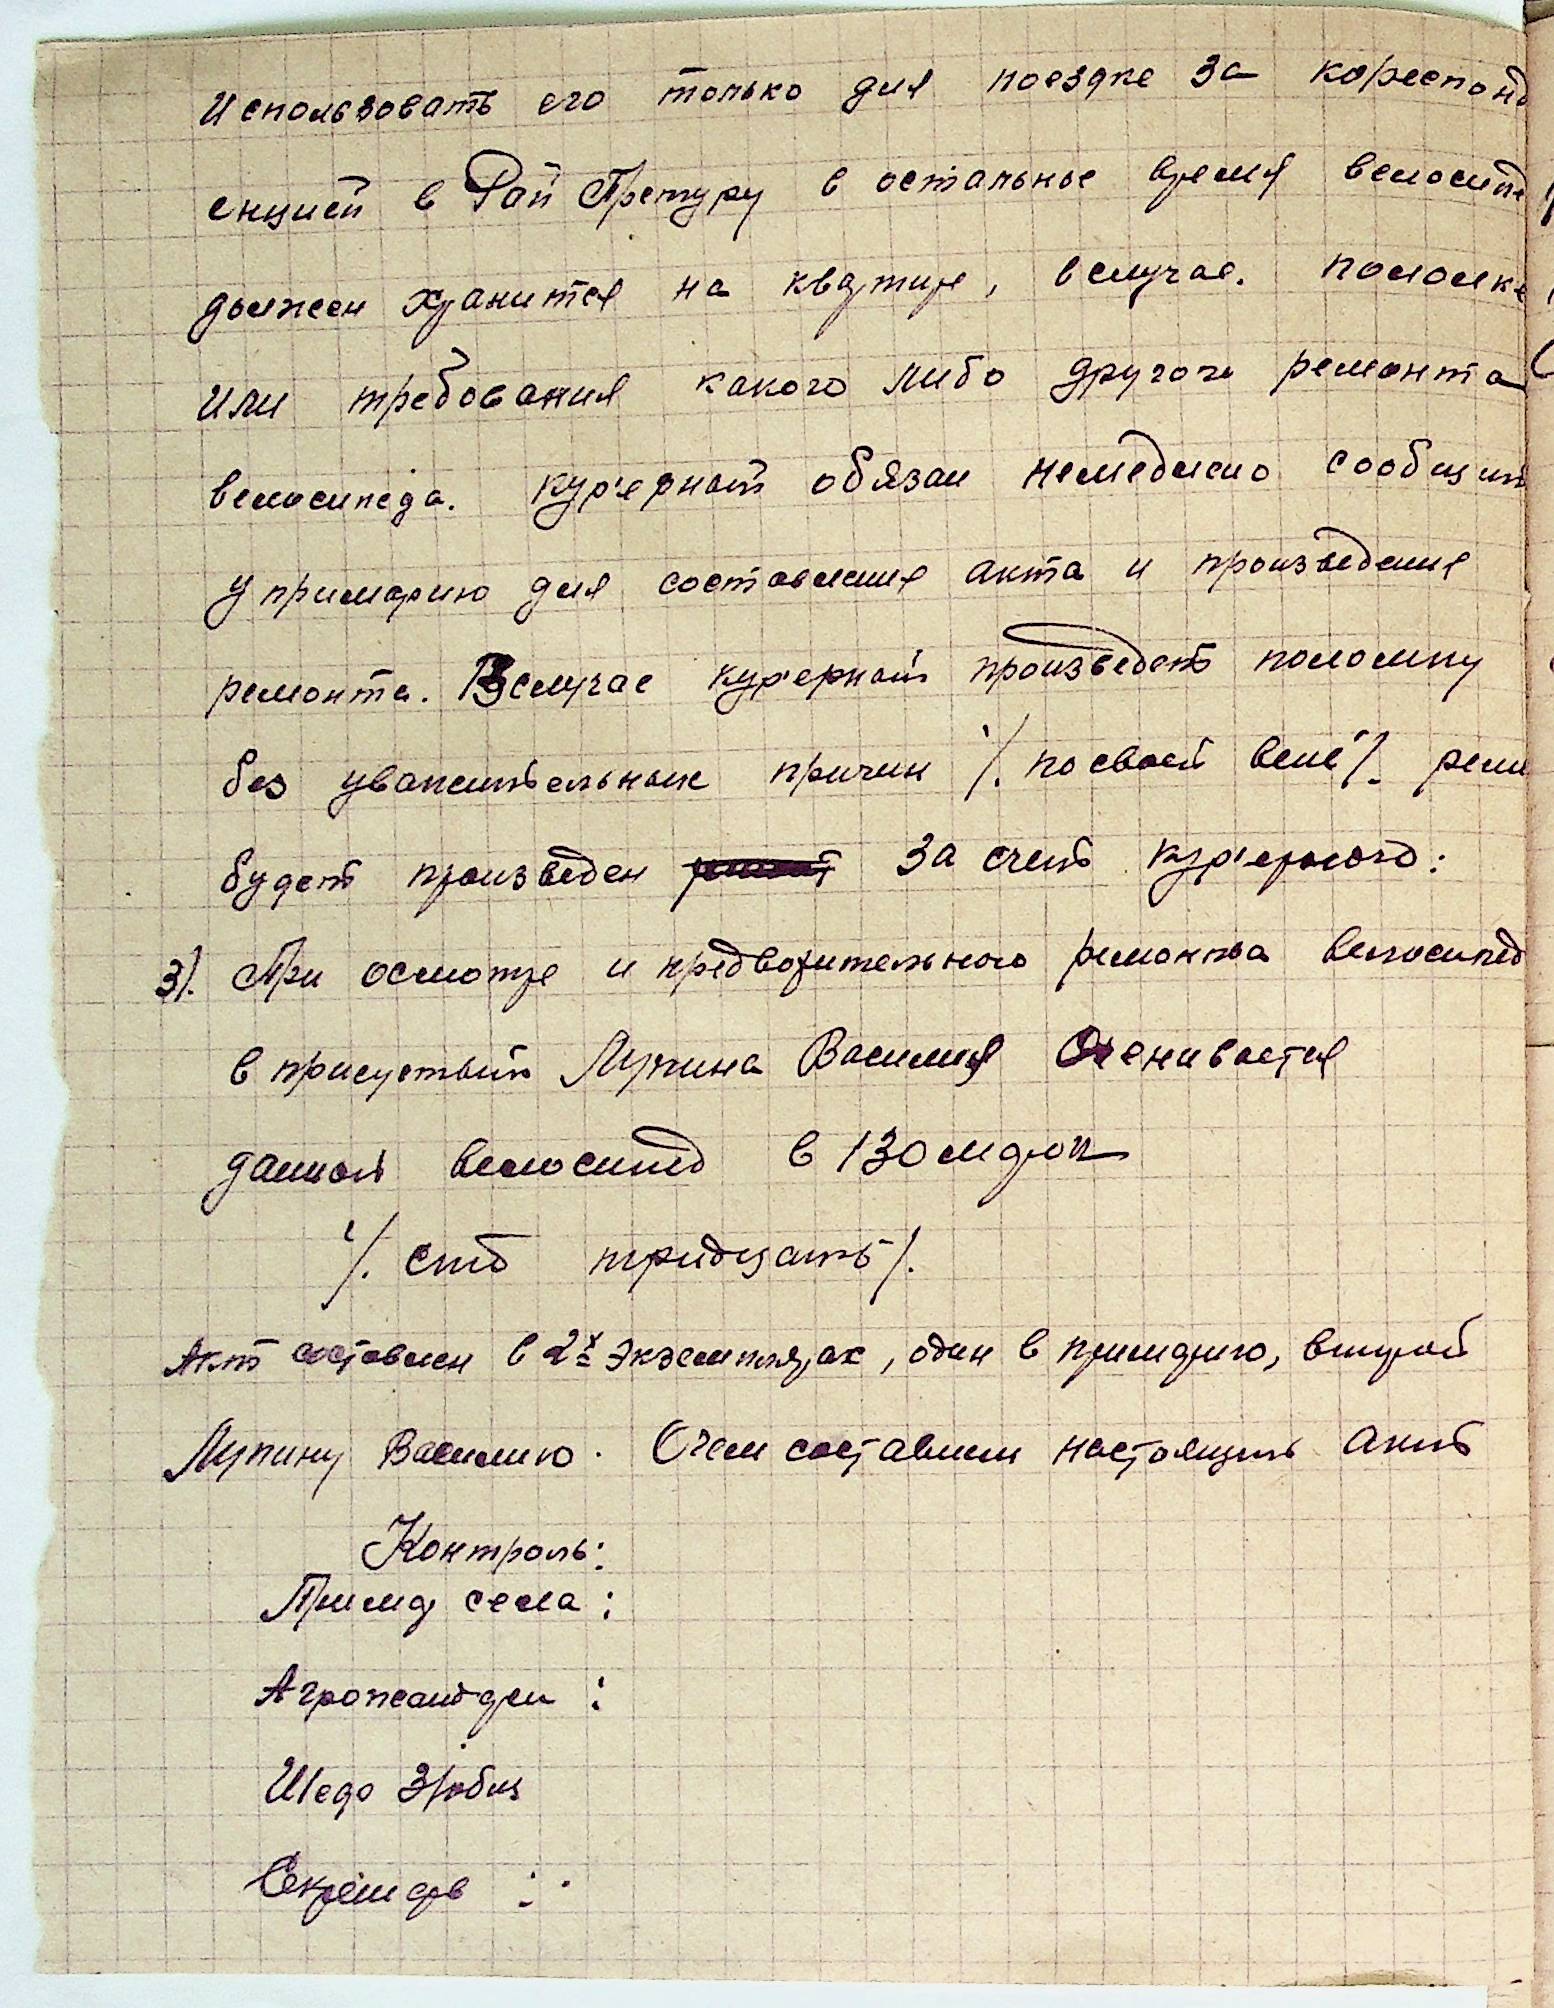 Использовать его только для поездке за кореспонд
енцией в Рай Претуру в остальное время велосипед
должен хранится на квартире, вслучае. поломке
или требования какого либо другого ремонта
велосипеда. кур'ерной обязан немедлено сообщить
у примарию для составления акта и произведения
ремонта. Вслучае кур'ерной произведет поломку
без уважительных причин /. по своей вене /. рем
будет произведен за счет кур'ерного:
3/. При осмотре и предворительного ремонтва велосипед
в присуствии Лупина Василия Оченивается
данной велосипед в 130 марок
/. сто тридцать /.
Акт составлен в 2х экземплярах, один в примарию, второй
Лупину Василию. Очем составлен настоящий акт
Контроль:
Примар села:
Агроном :
Шедо
Секретарь :